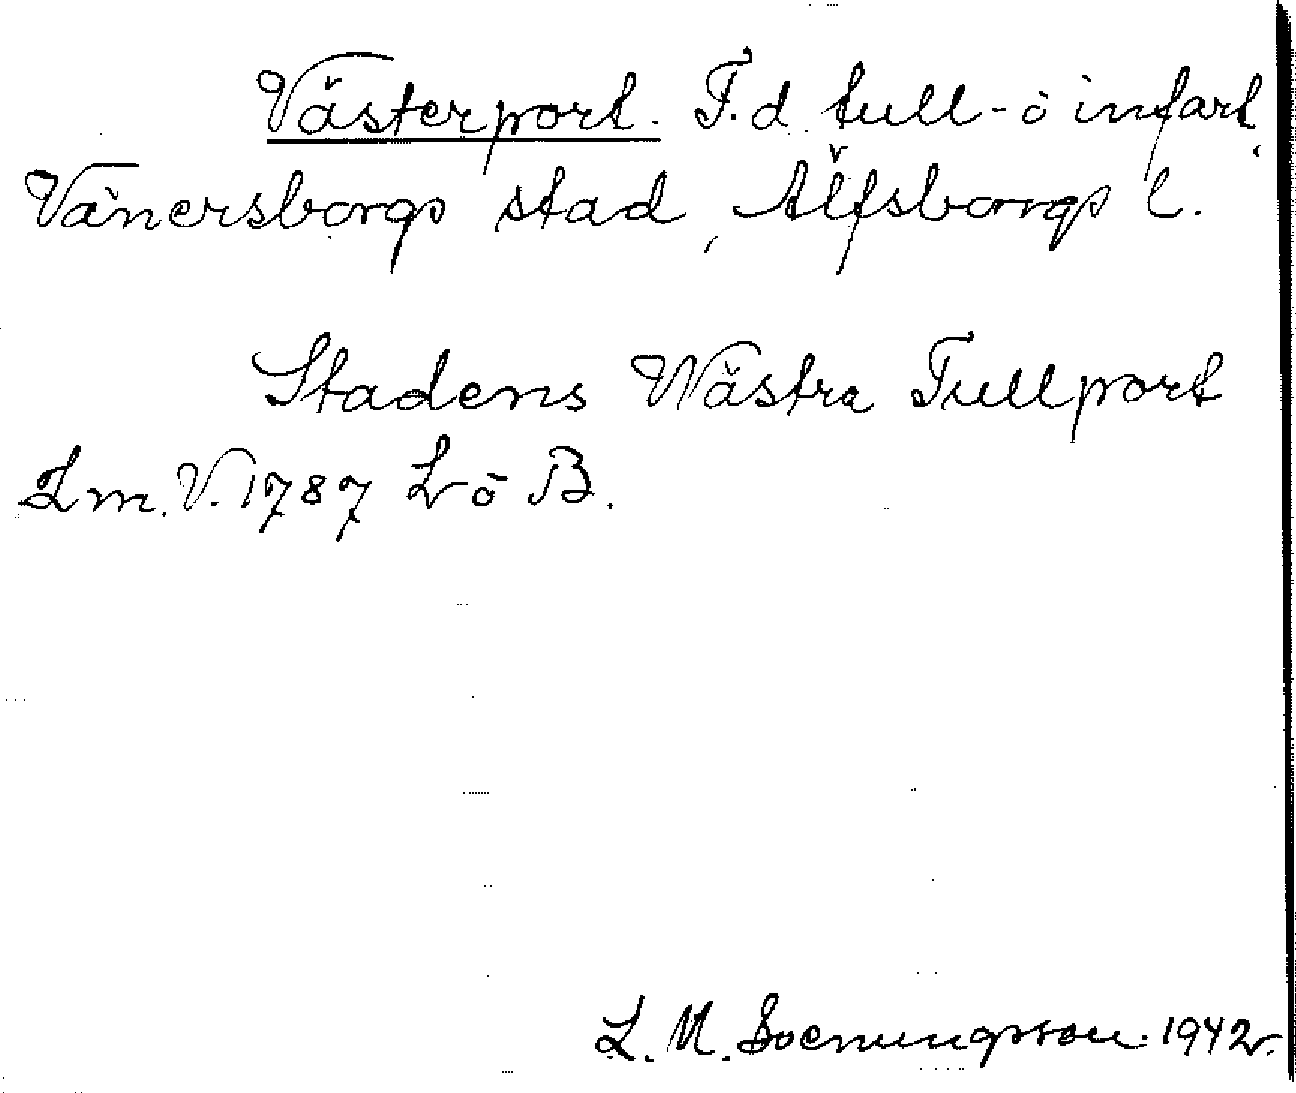 Västerport. F.d. tull- o infart,
Vänersborgs stad, Älfsborgs l.
Stadens Wästra Tullport
Lm. V. 1787 L ö B.
L. M. 1942.